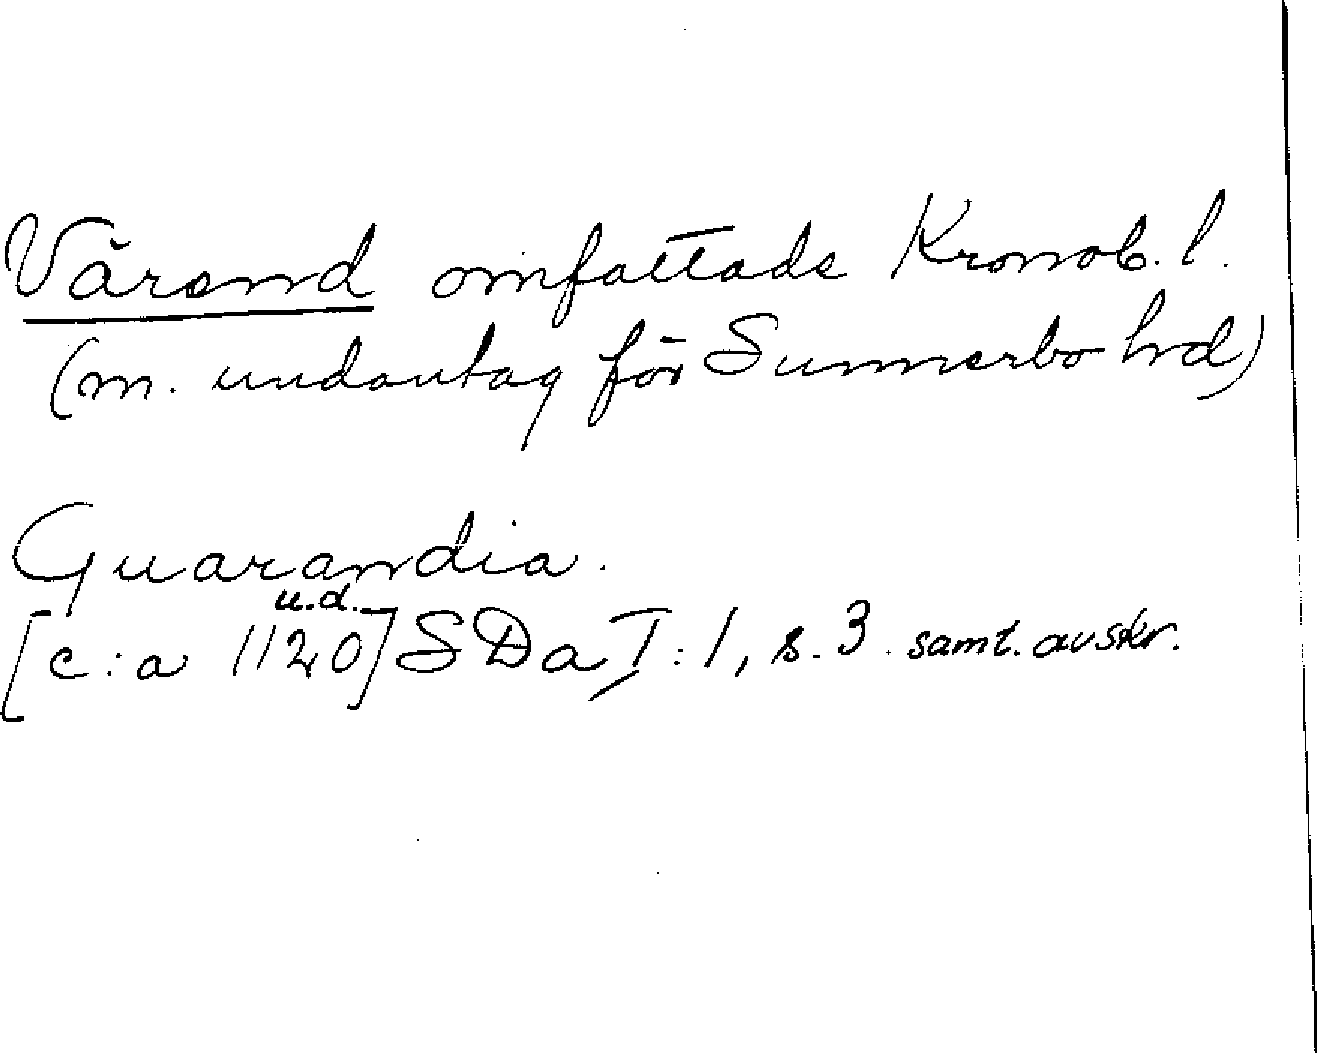 Värend omfattade Kronob. l.
(m. undantag för Sunnerbo hd)
Guarandia.
u.d.
[c:a 1120] SDa I:1, s. 3. samt. avskr.